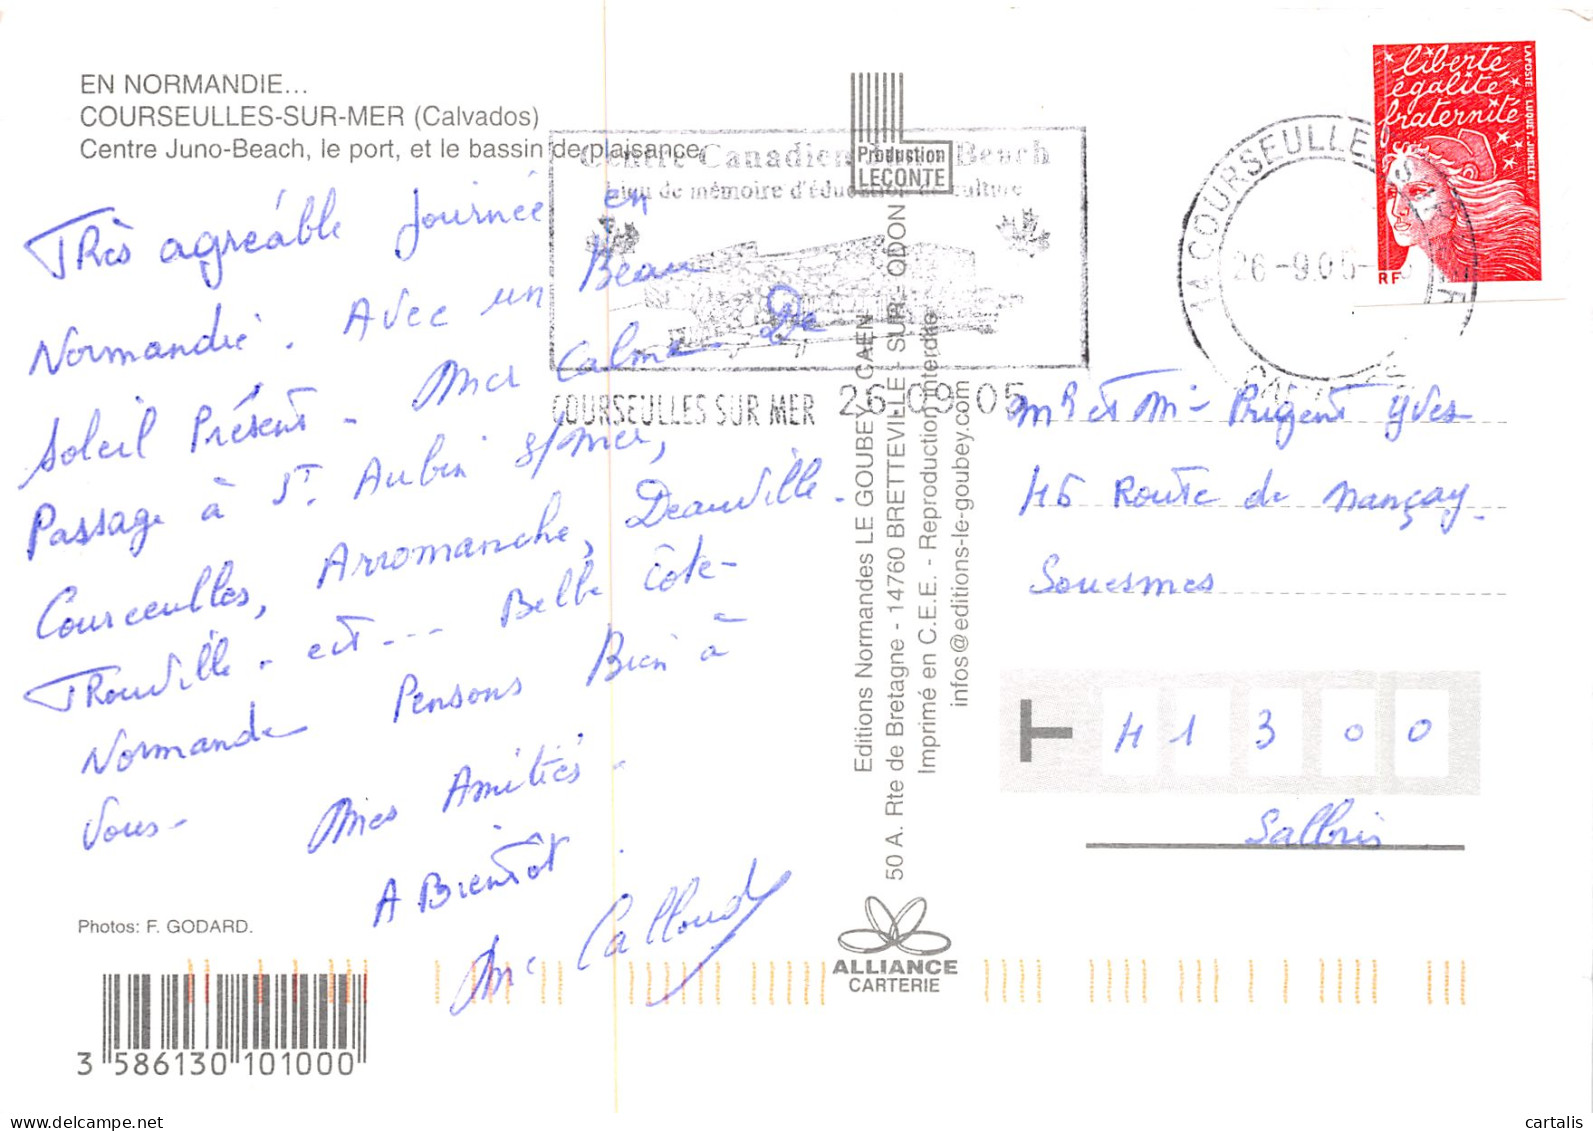 EN NORMANDIE...
COURSEULLES-SUR-MER (Calvados)
Centre Juno-Beach, le port, et le bassin de plaisance
Très agréable Journée en
Normandie. Avec un Beau
Soleil Présent - Mer Calme De
Passage à St. Aubin s/mer,
Courceulles, Arromanche, Deauville.
Trouville - est --- Belle Côte-
Normande Pensons Bien à
Vous-
Mes Amitiés.
A Bientôt.
Me Calloud
Photos: F. GODARD.
3 586130 101000
Production
LECONTE
Centre Canadien Beach
Lieu de mémoire d'éducation de culture
COURSEULLES SUR MER 26-09-05
Editions Normandes LE GOUBEY CAEN
50 A. Rte de Bretagne - 14760 BRETTEVILLE - SUR - ODON
Imprimé en C.E.E. - Reproduction interdite
infos@editions-le-goubey.com
ALLIANCE
CARTERIE
14 COURSEULLES S MER
26-9.05-
CALVADOS
liberté
égalité
fraternité
LA POSTE LUQUET. JUMELET
RF
Mr et Me Prigent Yves
45 Route de Nançay.
Souesmes
41300
Salbris
cartalis
www.delcampe.net